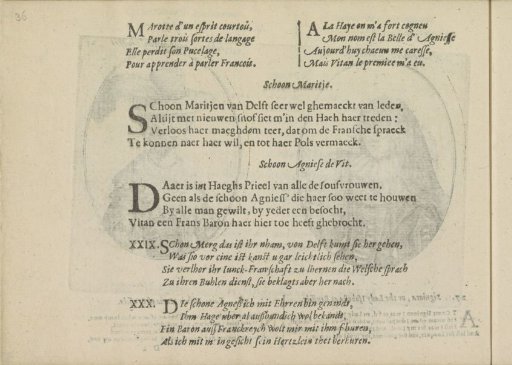 36
Marotte d'un esprit courtoú,
Parle trois sortes de langage
Elle perdit son Pucelage,
Pour apprender à parler Francois.
A La Haye on m'a fort cogneu
Mon nom est la Belle d' Agniesse
Aujourd'huy chacun me caresse,
Mais Vitan le premice m'a eu.
Schoon Maritje.
SChoon Maritjen van Delft seer wel ghemaeckt van leden,
Altijt met nieuwen snof siet m'in den Haeh haer treden:
Verloos haer maeghdom teer, dat om de Fransche spraeck
Te konnen naer haer wil, en tot haer Pols vermaeck.
Schoon Agniese de Vit.
DAaer is int Haeghs Prieel van alle de sousvrouwen,
Geen als de schoon Agniess' die haer soo weet te houwen
By alle man gewilt, by yeder een besocht,
Vitan een Frans Baron haer hier toe heeft ghebrocht.
XXIX. SChon Merg das ist ihr nham, von Delft kumt sie her gehen,
Was sio vor eine ist kanst u gar leichtlich sehen,
Sie verlhor ihr Iunck-Franschaft zu lhernen die Welsche sprach
Zu ihren Buhlen dienst, sie beklagts aber her nach.
XXX. DIe schone Agnessich mit Ehren bin genandt,
Ihm Hage uber al ausbundich wol bekandt,
Ein Baron auss Franckreych wolt mir mit ihm fhuren,
Als ich mit m ingesicht sein Hertzlein thet beruren.